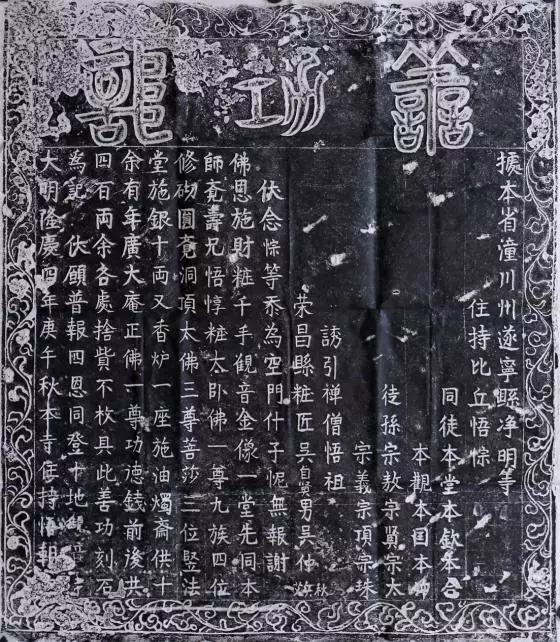 善功記
據本省潼川州遂寧縣净明寺
住持比丘悟悰
同徒本堂本欽本合
本觀本囯本
徒孫宗教宗賢宗太
宗義宗頂宗珠
誘引禅僧悟祖
荣昌縣粧匠吳自賢男吳仲
伏念悰等忝為空門什子怩無報謝
佛恩施財粧千手觀音金像一堂先同本
師堯壽兄悟惇粧太卧佛一尊九族四位
修砌圓覺洞頂太佛三尊菩莎三位竪法
堂施銀十両又香炉一座施油燭斋供十
余有年廣大庵正佛一尊功德錢前後共
四百両余各處捨貲不枚具此善功刻石
爲記 伏願普報四恩同登十地
大明隆慶四年庚午秋本寺住持悟